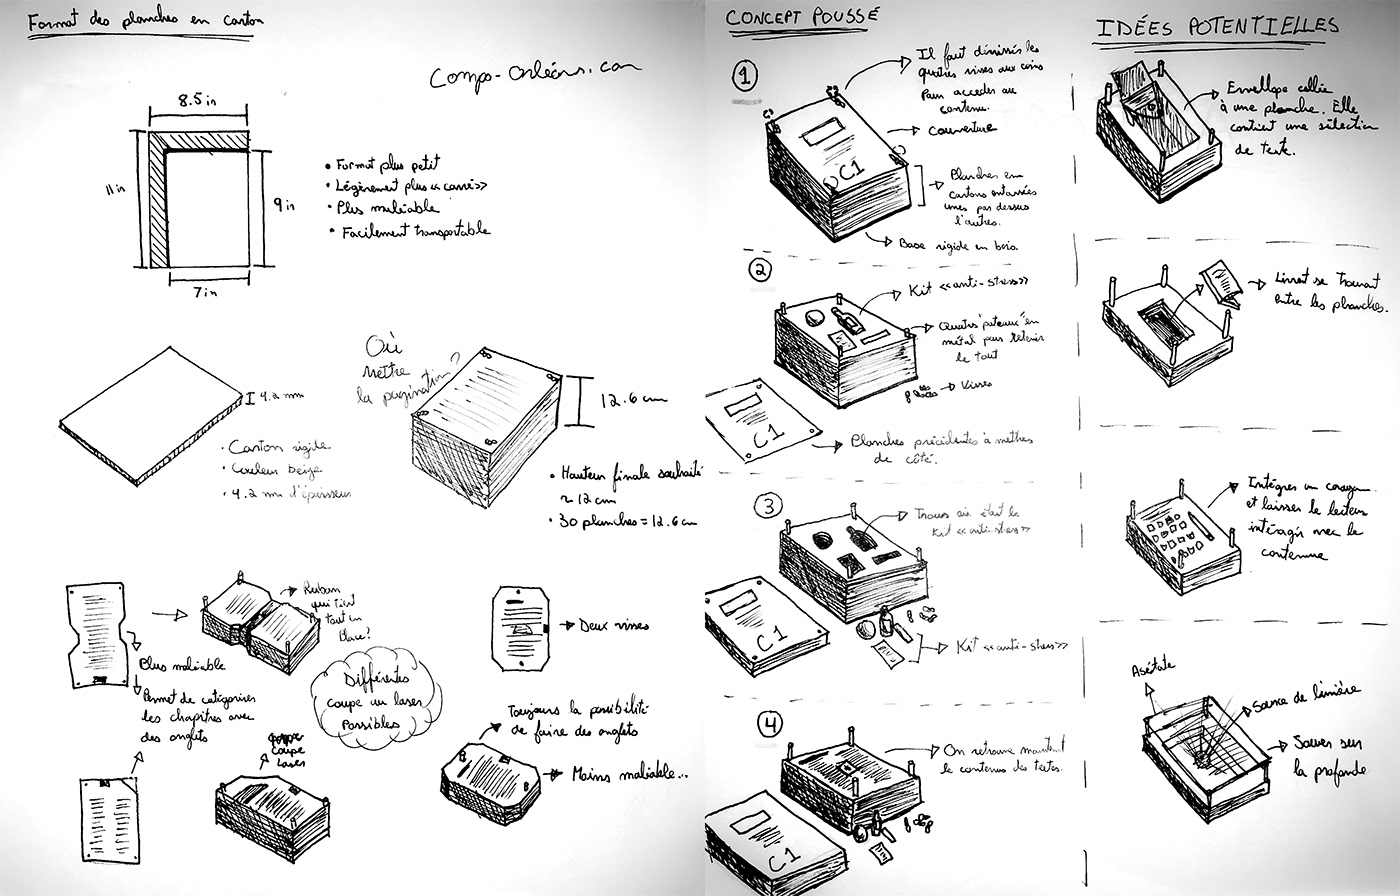 Format des planches en carton
8.5 in
11 in
9 in
7 in
• Format plus petit
• Légèrement plus «carré»
• Plus maléable
• Facilement transportable
4.2 mm
• Carton rigide
• Couleur beige
• 4.2 mm d'épaisseur
Où
mettre
la pagination?
12.6 cm
• Hauteur finale souhaité
~ 12 cm
• 30 planches = 12.6 cm
Plus maléable
Permet de catégoriser
les chapitres avec
des onglets
Ruban
qui tient
tout en
place?
Différentes
coupe au laser
possibles
Coupe
laser
Deux visses
Toujours la possibilité
de faire des onglets
Moins maléable...
CONCEPT POUSSÉ
1
Il faut dévissés les
quatres visses aux coins
pour accéder au
contenu.
Couverture
C1
Planches en
cartons entassées
unes par dessus
l'autres.
Base rigide en bois.
2
Kit «anti-stress»
Quatres "poteaux" en
métal pour retenir
le tout
Visses
C1
Planches précédentes à mettres
de côté.
3
Trous où était le
Kit «anti-stress»
C1
Kit «anti-stress»
4
On retrouve maintent
le contenus des textes.
C1
IDÉES POTENTIELLES
Envellope collée
à une planche. Elle
contient une sélection
de texte.
Livret se trouvant
entre les planches.
Intégrer un crayon
et laisser le lecteur
intéragir avec le
contenue
Asétate
Source de lumière
Jouer sur
la profonde